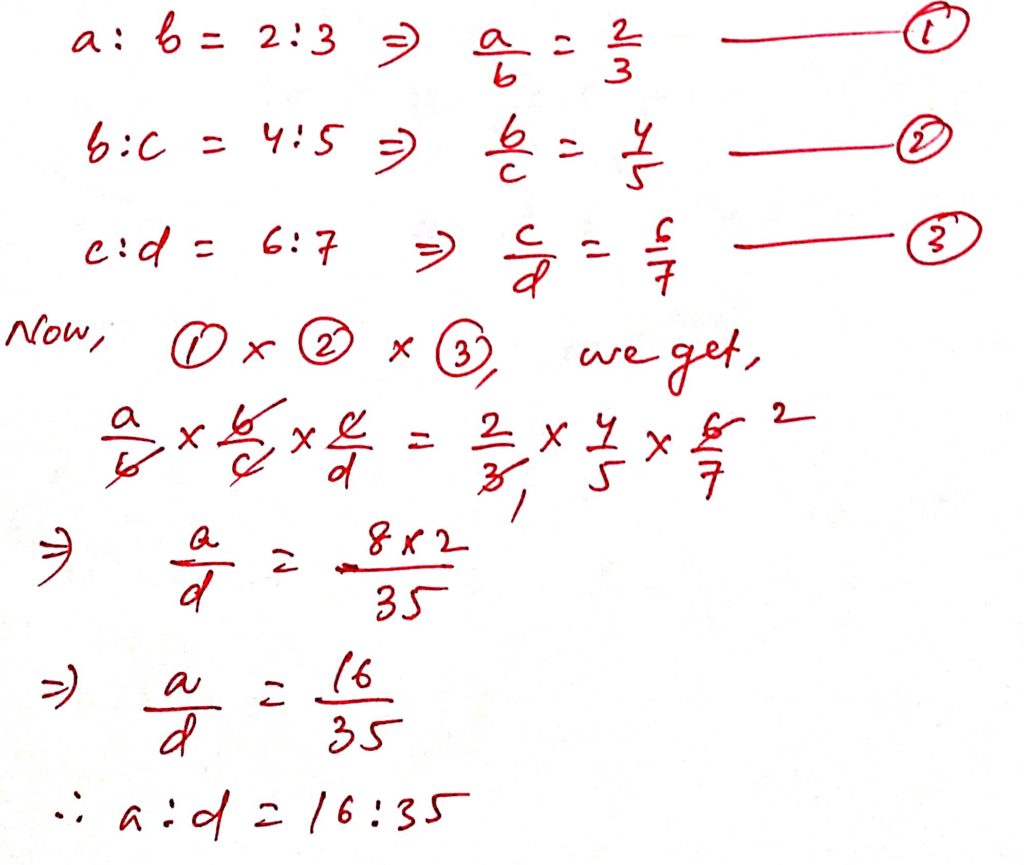 a : b = 2 : 3 ⇒ a/b = 2/3 ——— ①
b : c = 4 : 5 ⇒ b/c = 4/5 ——— ②
c : d = 6 : 7 ⇒ c/d = 6/7 ——— ③
Now, ① × ② × ③, we get,
a/b × b/c × c/d = 2/3 1 × 4/5 × 6/7 2
⇒ a/d = 8×2/35
⇒ a/d = 16/35
∴ a : d = 16 : 35